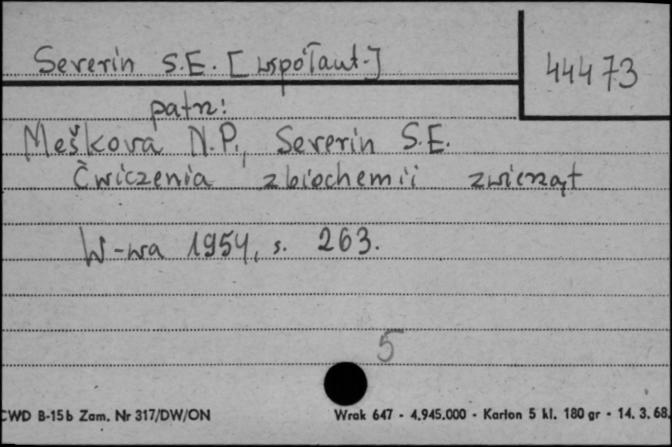 Severin S.E. [współaut.]
44473
patrz:
Meškova N.P., Severin S.E.
Ćwiczenia z biochemii zwierząt
W-wa 1954, s. 263.
5
CWD B-15b Zam. Nr 317/DW/ON Wrak 647 - 4.945.000 - Karton 5 kl. 180 gr - 14. 3. 68.